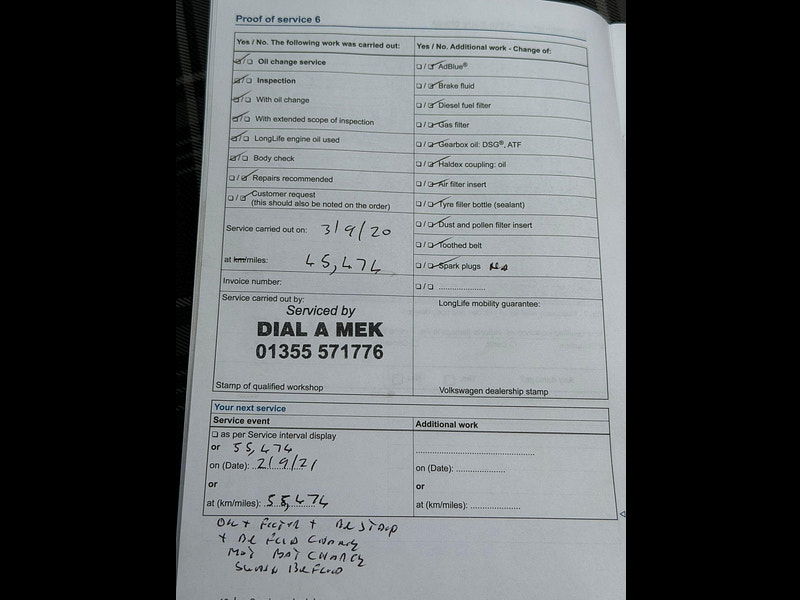 Proof of service 6
Yes / No. The following work was carried out:
☑/☐ Oil change service
☑/☐ Inspection
☑/☐ With oil change
☑/☐ With extended scope of inspection
☑/☐ LongLife engine oil used
☑/☐ Body check
☐/☑ Repairs recommended
☐/☑ Customer request
(this should also be noted on the order)
Service carried out on: 3/9/20
at km/miles: 45,474
Invoice number:
Service carried out by:
Serviced by
DIAL A MEK
01355 571776
Stamp of qualified workshop
Yes / No. Additional work - Change of:
☐/☑ AdBlue®
☐/☑ Brake fluid
☐/☑ Diesel fuel filter
☐/☑ Gas filter
☐/☑ Gearbox oil: DSG®, ATF
☐/☑ Haldex coupling: oil
☐/☑ Air filter insert
☐/☑ Tyre filler bottle (sealant)
☐/☑ Dust and pollen filter insert
☐/☑ Toothed belt
☐/☑ Spark plugs
☐/☐ ......................
LongLife mobility guarantee:
Volkswagen dealership stamp
Your next service
Service event
☐ as per Service interval display
or 55,474
on (Date): 2/9/21
or
at (km/miles): 55,474
Additional work
on (Date): ..................
or
at (km/miles): ..................